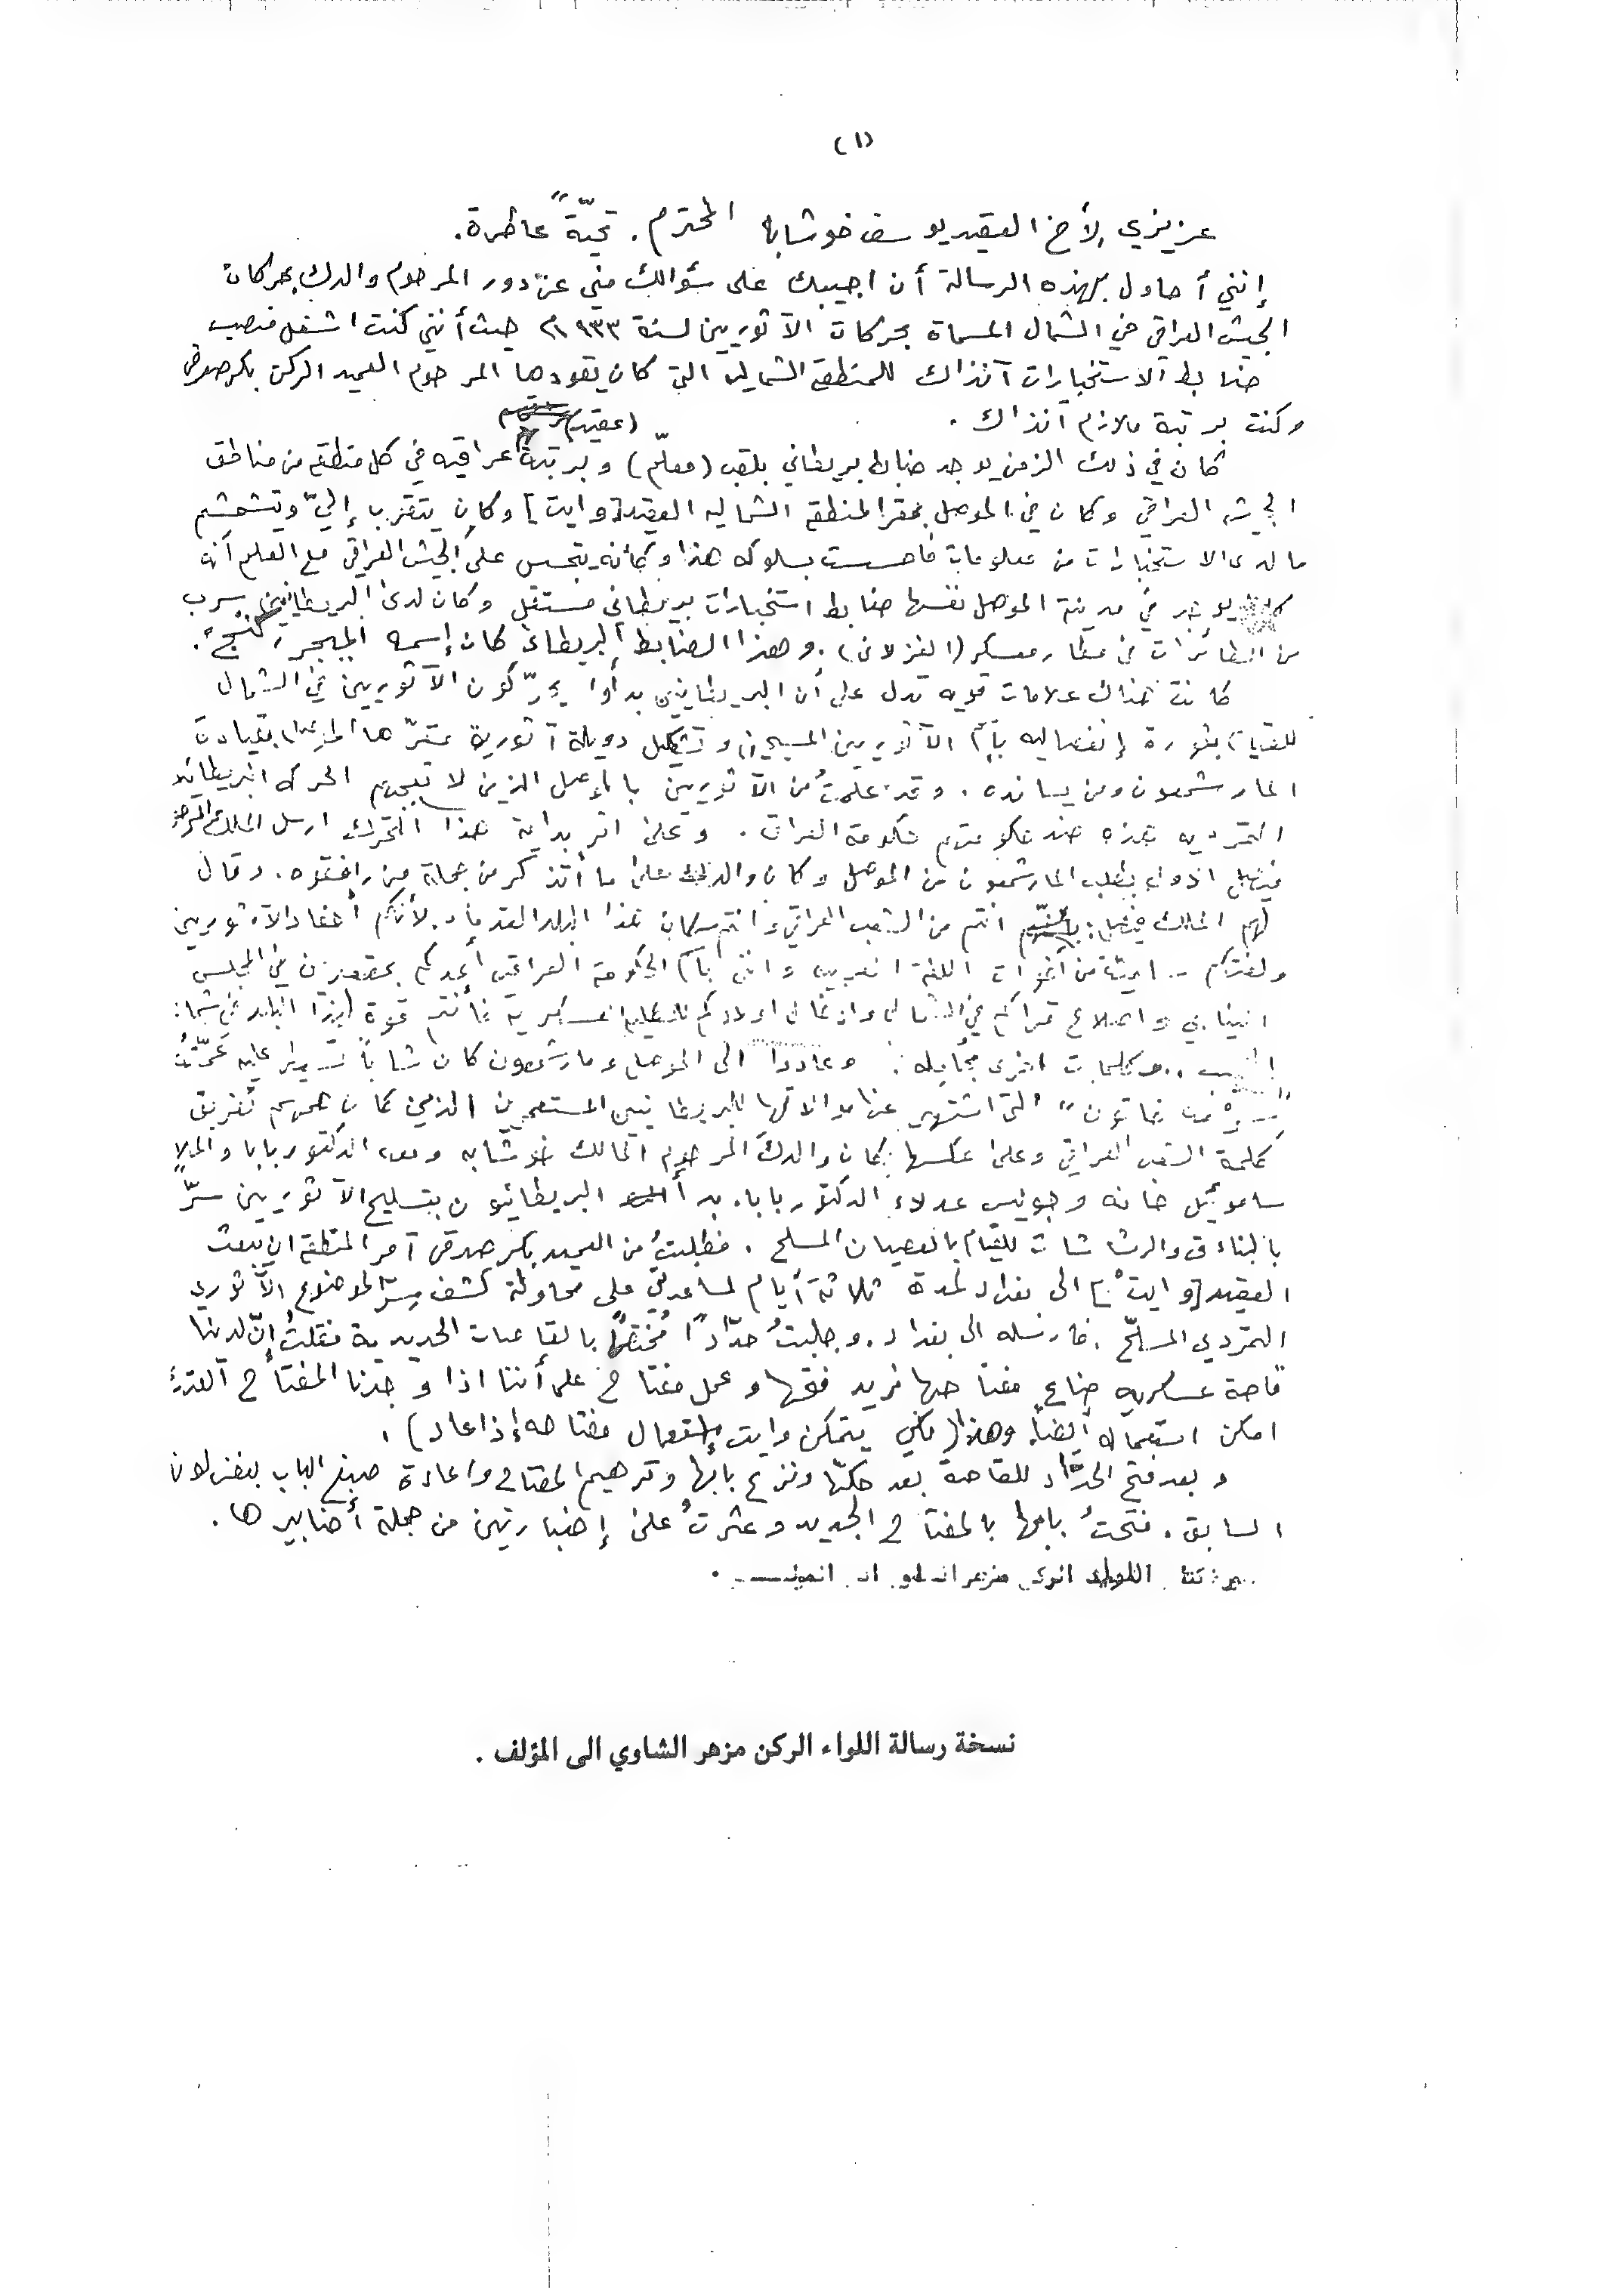 (١)
عزيزي الأخ العقيد يوسف خوشابا المحترم. تحيّةً عاطرة.
إنني أحاول بهذه الرسالة أن اجيبك على سؤالك مني عن دور المرحوم والدك بحركات
الجيش العراقي في الشمال المسماة بحركات الآثوريين لسنة ١٩٣٣م حيث أنني كنت اشغل منصب
ضابط الاستخبارات آنذاك للمنطقة الشماليه التي كان يقودها المرحوم العميد الركن بكر صدقي
وكنت برتبة ملازم آنذاك .
(عقيد)
كان في ذلك الزمن يوجد ضابط بريطاني بلقب (معلّم) وبرتبة عراقيه في كل منطقه من مناطق
الجيش العراقي وكان في الموصل بمقر المنطقه الشماليه العقيد [وايت] وكان يتقرب إليّ ويتشمشم
ما لدى الاستخبارات من معلومات فأحسست بسلوكه هذا وكأنه يتجسس على الجيش العراقي مع العلم أنه
يوجد في مدينة الموصل نفسها ضابط استخبارات بريطاني مستقل وكان لدى البريطانيين سرب
من الطائرات في مطار معسكر (الغزلاني) . وهذا الضابط البريطاني كان إسمه الميجر
كانت هناك علامات قويه تدل على أن البريطانيين بدأوا يحرّكون الآثوريين في الشمال
للقيام بثورة إنفصاليه بأسم الآثوريين المسيحيين وتشكيل دويلة آثورية مقرّها بقيادة
المار شمعون ومن يسانده . وقد علمتُ من الآثوريين بالموصل الذين لا تعجبهم الحركه البريطانيه
التمرديه هذه ضد حكومتهم حكومة العراق . وعلى اثر بداية هذا التحرك ارسل الملك المرحوم
فيصل الاول بطلب المار شمعون من الموصل وكان والدك على ما أتذكر من جملة من رافقوه . وقال
لهم الملك فيصل: انتم من الشعب العراقي وانتم سكان هذا البلد القدماء. لأنكم أحفاد الآثوريين
ولغتكم .. اللغة العربيه وانني بأسم الحكومة العراقيه أعدكم بمقعدين في المجلس
النيابي واصلاح قراكم في الشمال وادخال اولادكم فأنتم قوة لهذا البلد في شمال
.. وكلمات اخرى مجامله . وعادوا الى الموصل ومار شمعون كان شاباً تسيطر عليه عمّته
"سرمه خاتون" التي اشتهر عنها موالاتها للبريطانيين المستعمرين الذين كان همهم تفريق
كلمة الشعب العراقي وعلى عكسها كان والدك المرحوم المالك خوشابه ومعه الدكتور بابا والملا
ساموئيل خانه وجونيس عدلاء الدكتور بابا. بدأ البريطانيون بتسليح الآثوريين سرّاً
بالبنادق والرشاشات للقيام بالعصيان المسلح . فطلبتُ من العميد بكر صدقي آمر المنطقه ان يبعث
العقيد [وايت] الى بغداد لمدة ثلاثة أيام لمساعدتي على محاولة كشف سرّ الموضوع الآثوري
التمردي المسلّح . فارسله الى بغداد . وجلبتُ حدّاداً مُختصاً بالقاصات الحديدية فقلتُ إنّ لدينا
قاصة عسكريه ضاع مفتاحها نريد فتحها وعمل مفتاح على أننا اذا وجدنا المفتاح القديم
امكن استعماله أيضاً وهذا (لكي يتمكن وايت إستعمال مفتاحه إذا عاد) .
وبعد فتح الحدّاد للقاصة بعد حكّها ونزع بابها وترهيم المفتاح واعادة صبغ الباب بنفس لون
السابق . فتحتُ بابها بالمفتاح الجديد وعثرتُ على إضبارتين من جملة أضابيرها .
نسخة رسالة اللواء الركن مزهر الشاوي الى المؤلف .